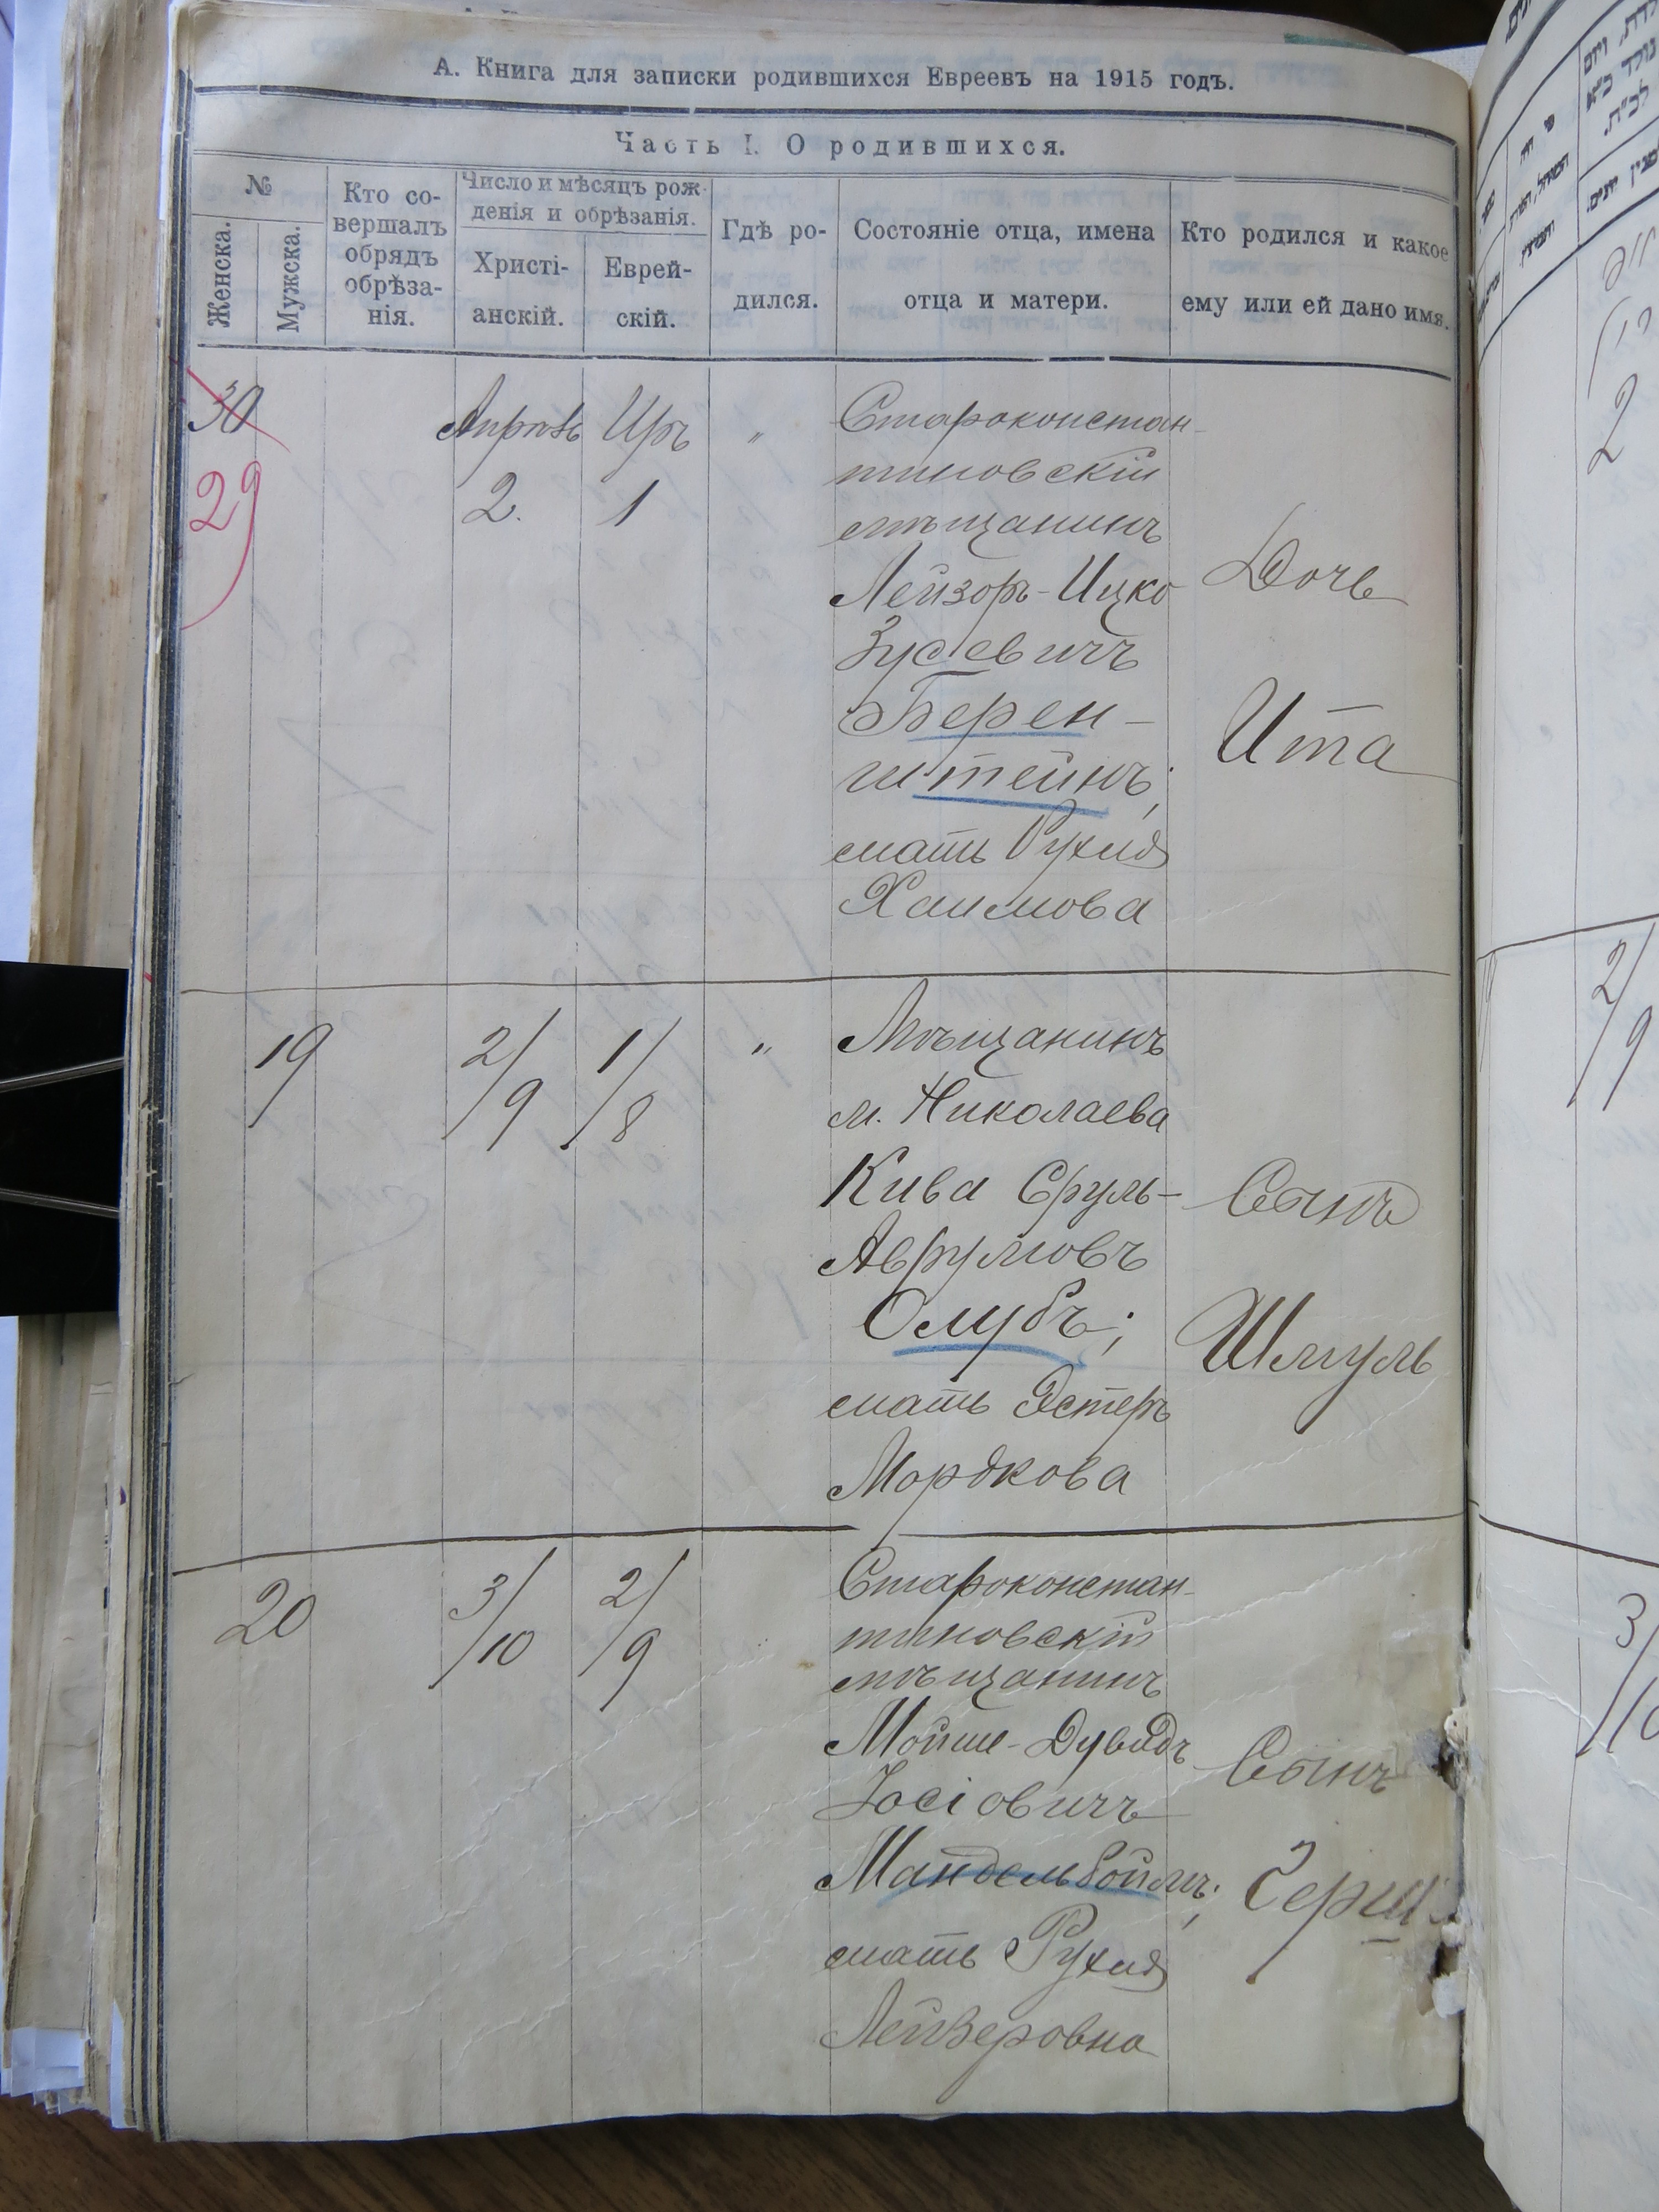 А. Книга для записки родившихся Евреевъ на 1915 годъ.
Часть I. О родившихся.
№
Женска.
Мужска.
Кто со-
вершалъ
обрядъ
обрѣза-
нія.
Число и мѣсяцъ рож-
денія и обрѣзанія.
Христі-
анскій.
Еврей-
скій.
Гдѣ ро-
дился.
Состояніе отца, имена
отца и матери.
Кто родился и какое
ему или ей дано имя.
30
29
Апрѣль
2.
Иръ
1
"
Староконстан-
тиновскій
мѣщанинъ
Лейзоръ-Ицко
Зусевичъ
Берен-
штейнъ;
мать Рухля
Хаимова
Дочь
Ита
19
2/9
1/8
"
Мѣщанинъ
м. Николаева
Кива Сруль-
Аврумовъ
Голубъ;
мать Эстеръ
Мордкова
Сынъ
Шмуль
20
3/10
2/9
Староконстан-
тиновскій
мѣщанинъ
Мойше-Дувидъ
Іосіовичъ
Мандельбоймъ;
мать Рухля
Лейзеровна
Сынъ
2
2/9